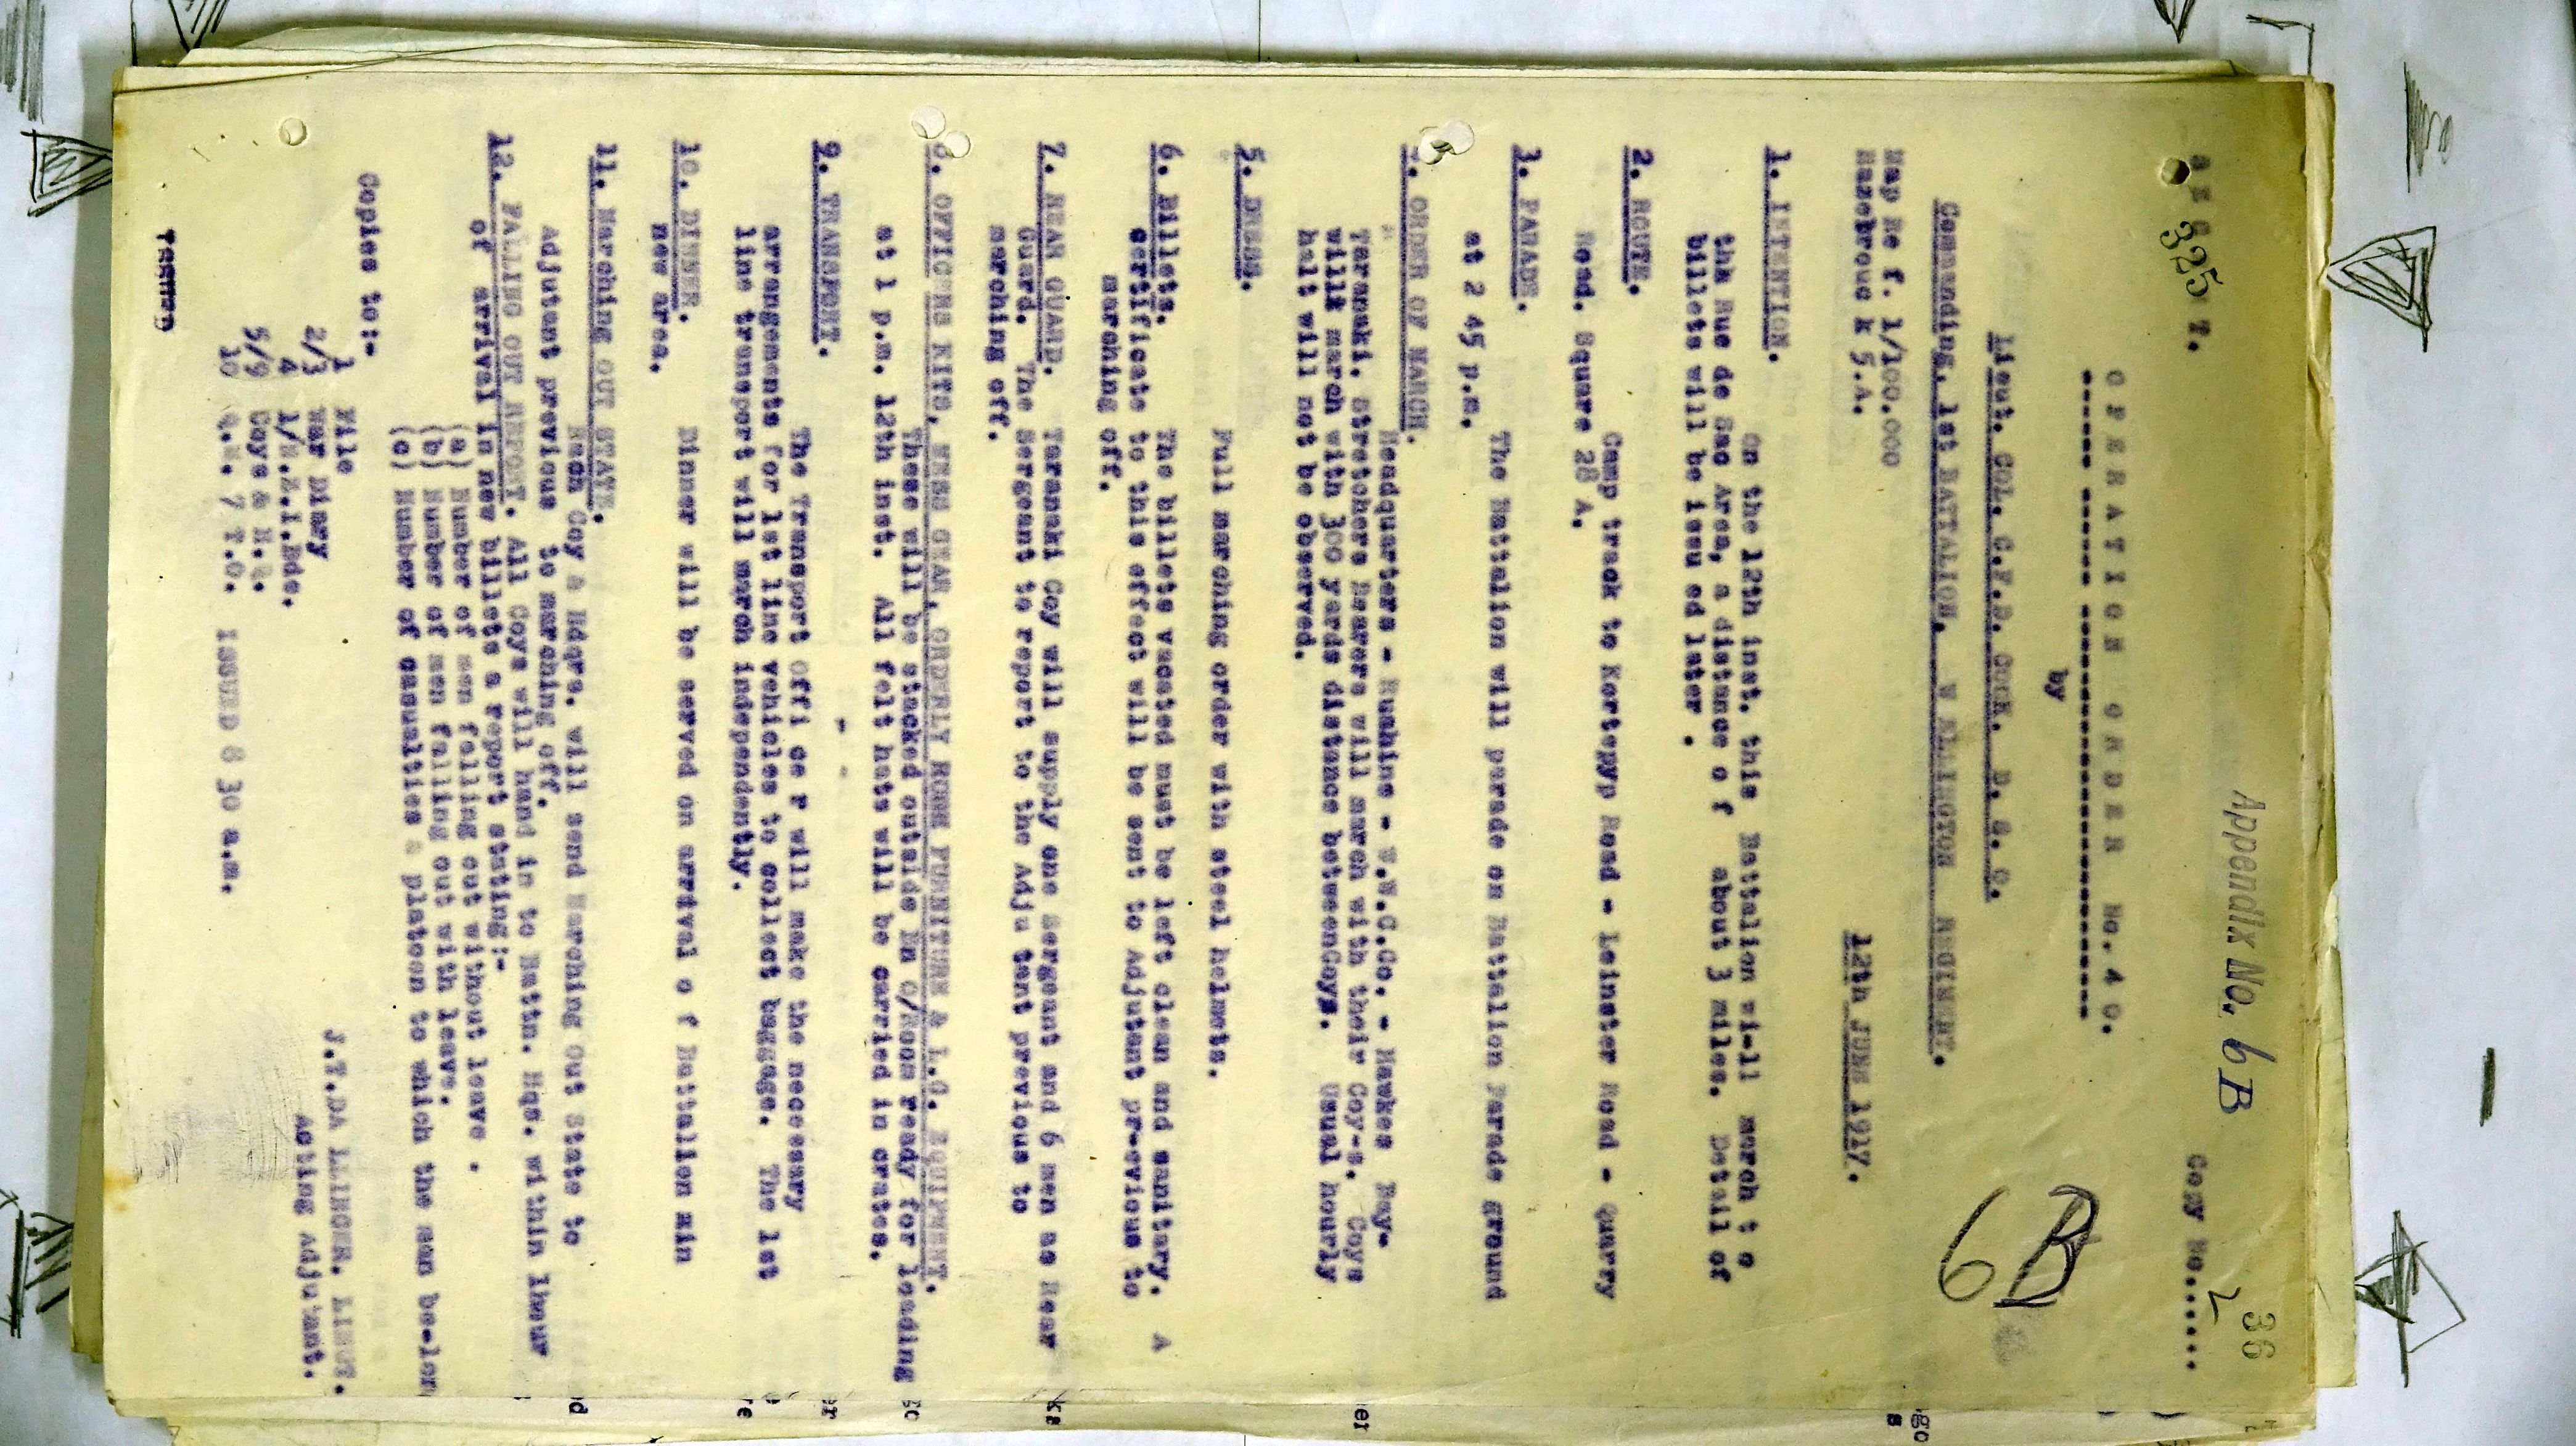 Appendix No. 6B
36
S E C R E T.
325
Copy No.......
2
O P E R A T I O N   O R D E R   No. 4 0.
by
Lieut. COL. C.F.D. COOK. D. S. O.
Commanding, 1st BATTALION, W ELLINGTON REGIMENT.
6B
Map Re f. 1/100.000
Hazebrouck 5.A.
12th JUNE 1917.
1. INTENTION.
On the 12th inst. this Battalion wi-ll march t o
the Rue de Sac Area, a distance o f about 3 miles. Detail of
billets will be issu ed later .
2. ROUTE.
Camp track to Kortepyp Road - Leinster Road - Quarry
Road. Square 28 A.
1. PARADE.
The Battalion will parade on Battalion Parade ground
at 2 45 p.m.
ORDER OF MARCH.
Headquarters - Ruahine - W.W.C.Co. - Hawkes Bay-
Taranaki. Stretchers Bearers will march with their Coy-s. Coys
will march with 300 yards distance betweenCoys. Usual hourly
halt will not be observed.
5. DRESS.
Full marching order with steel helmets.
6. Billets.
The billets vacated must be left clean and sanitary. A
certificate to this effect will be sent to Adjutant pr-evious to
marching off.
7. REAR GUARD.
Taranaki Coy will supply one Sergeant and 6 men as Rear
Guard. The Sergeant to report to the Adju tant previous to
marching off.
8. OFFICERS KITS, MESS GEAR, ORDERLY ROOM FURNITURE & L.G. EQUIPMENT.
These will be stacked outside Bn O/Room ready for loading
at 1 p.m. 12th inst. All felt hats will be carried in crates.
9. TRANSPORT.
The Transport Offi ce r will make the necessary
arrangements for 1st line vehicles to collect baggage. The 1st
line transport will march independently.
10. DINNER.
Dinner will be served on arrival o f Battalion min
new area.
11. Marching OUT STATE.
Each Coy & Hdqrs. will send Marching Out State to
Adjutant previous to marching off.
12. FALLING OUT REPORT. All Coys will hand in to Battn. Hqs. within 1hour
of arrival in new billets a report stating:-
(a) Number of men falling out without leave .
(b) Number of men falling out with leave.
(c) Number of casualties & platoon to which the man be-lon
Copies to:-
1 File
2/3 War Diary
4 1/N.Z.I.Bde.
5/9 Coys & H.Q.
10 Q.M. 7 T.O.
ISSUED 6 30 a.m.
J.T.DA LLINGER. LIEUT.
Acting Adjutant.